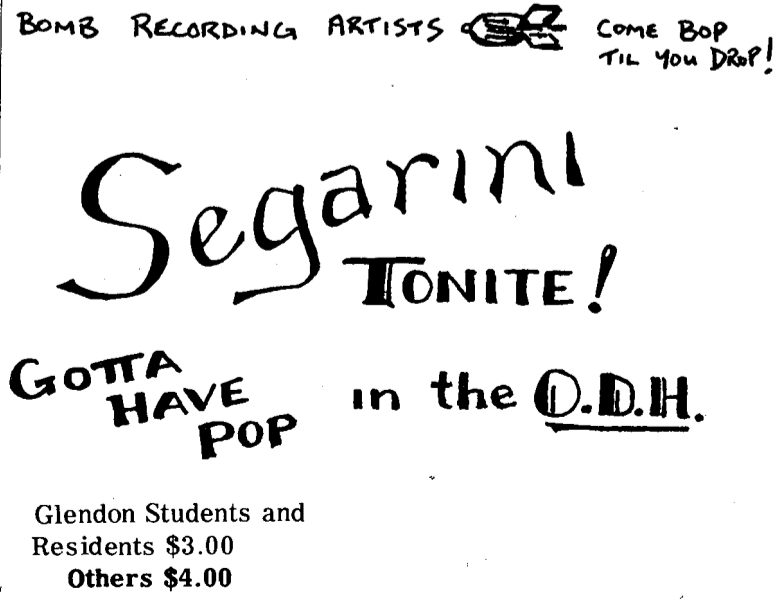 BOMB RECORDING ARTISTS
COME BOP
TIL YOU DROP!
Segarini
TONITE!
GOTTA
HAVE
POP
in the O.D.H.
Glendon Students and
Residents $3.00
Others $4.00